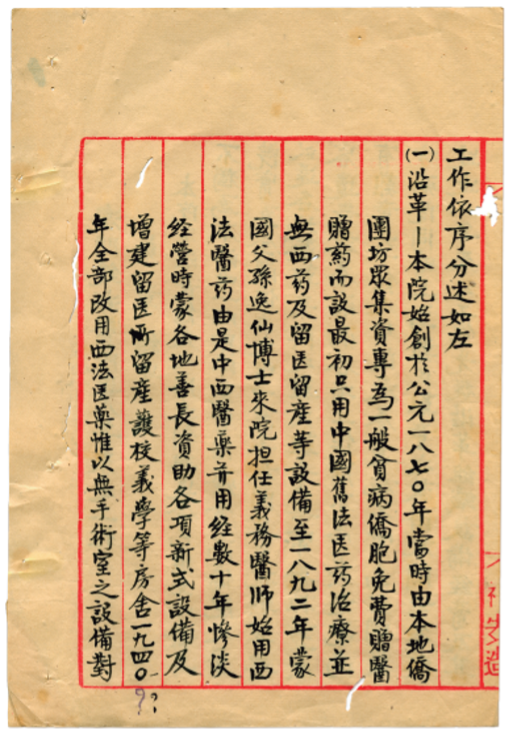 工作依序分述如左
(一)沿革—本院始創於公元一八七〇年當時由本地僑
團坊眾集資專為一般貧病僑胞免費贈醫
贈药而設最初只用中國舊法医药治療並
無西药及留医留產等設備至一八九二年蒙
國父孫逸仙博士來院担任義務醫師始用西
法醫药由是中西醫藥并用經數十年慘淡
經營時蒙各地善長資助各項新式設備及
增建留医所留產護校義學等房舍一九四〇
年全部改用西法医藥惟以無手術室之設備對